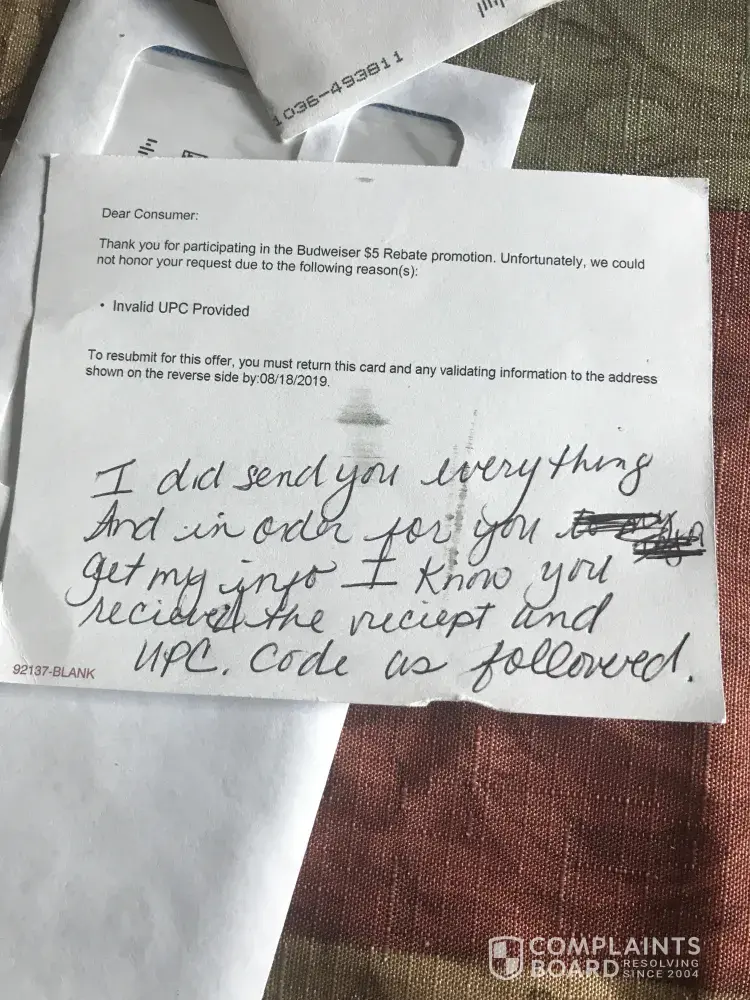 1036-493811
Dear Consumer:
Thank you for participating in the Budweiser $5 Rebate promotion. Unfortunately, we could
not honor your request due to the following reason(s):
• Invalid UPC Provided
To resubmit for this offer, you must return this card and any validating information to the address
shown on the reverse side by:08/18/2019.
I did send you everything
And in order for you
get my info I know you
recieved the reciept and
UPC. Code as followered.
92137-BLANK
COMPLAINTS
BOARD RESOLVING
SINCE 2004